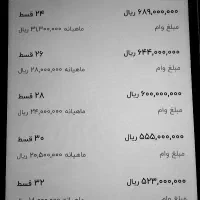 ۶۸۹,۰۰۰,۰۰۰ ریال ۲۴ قسط
مبلغ وام ماهیانه ۳۱,۳۰۰,۰۰۰ ریال
۶۴۴,۰۰۰,۰۰۰ ریال ۲۶ قسط
مبلغ وام ماهیانه ۲۸,۰۰۰,۰۰۰ ریال
۶۰۰,۰۰۰,۰۰۰ ریال ۲۸ قسط
مبلغ وام ماهیانه ۲۴,۰۰۰,۰۰۰ ریال
۵۵۵,۰۰۰,۰۰۰ ریال ۳۰ قسط
مبلغ وام ماهیانه ۲۰,۵۰۰,۰۰۰ ریال
۵۲۳,۰۰۰,۰۰۰ ریال ۳۲ قسط